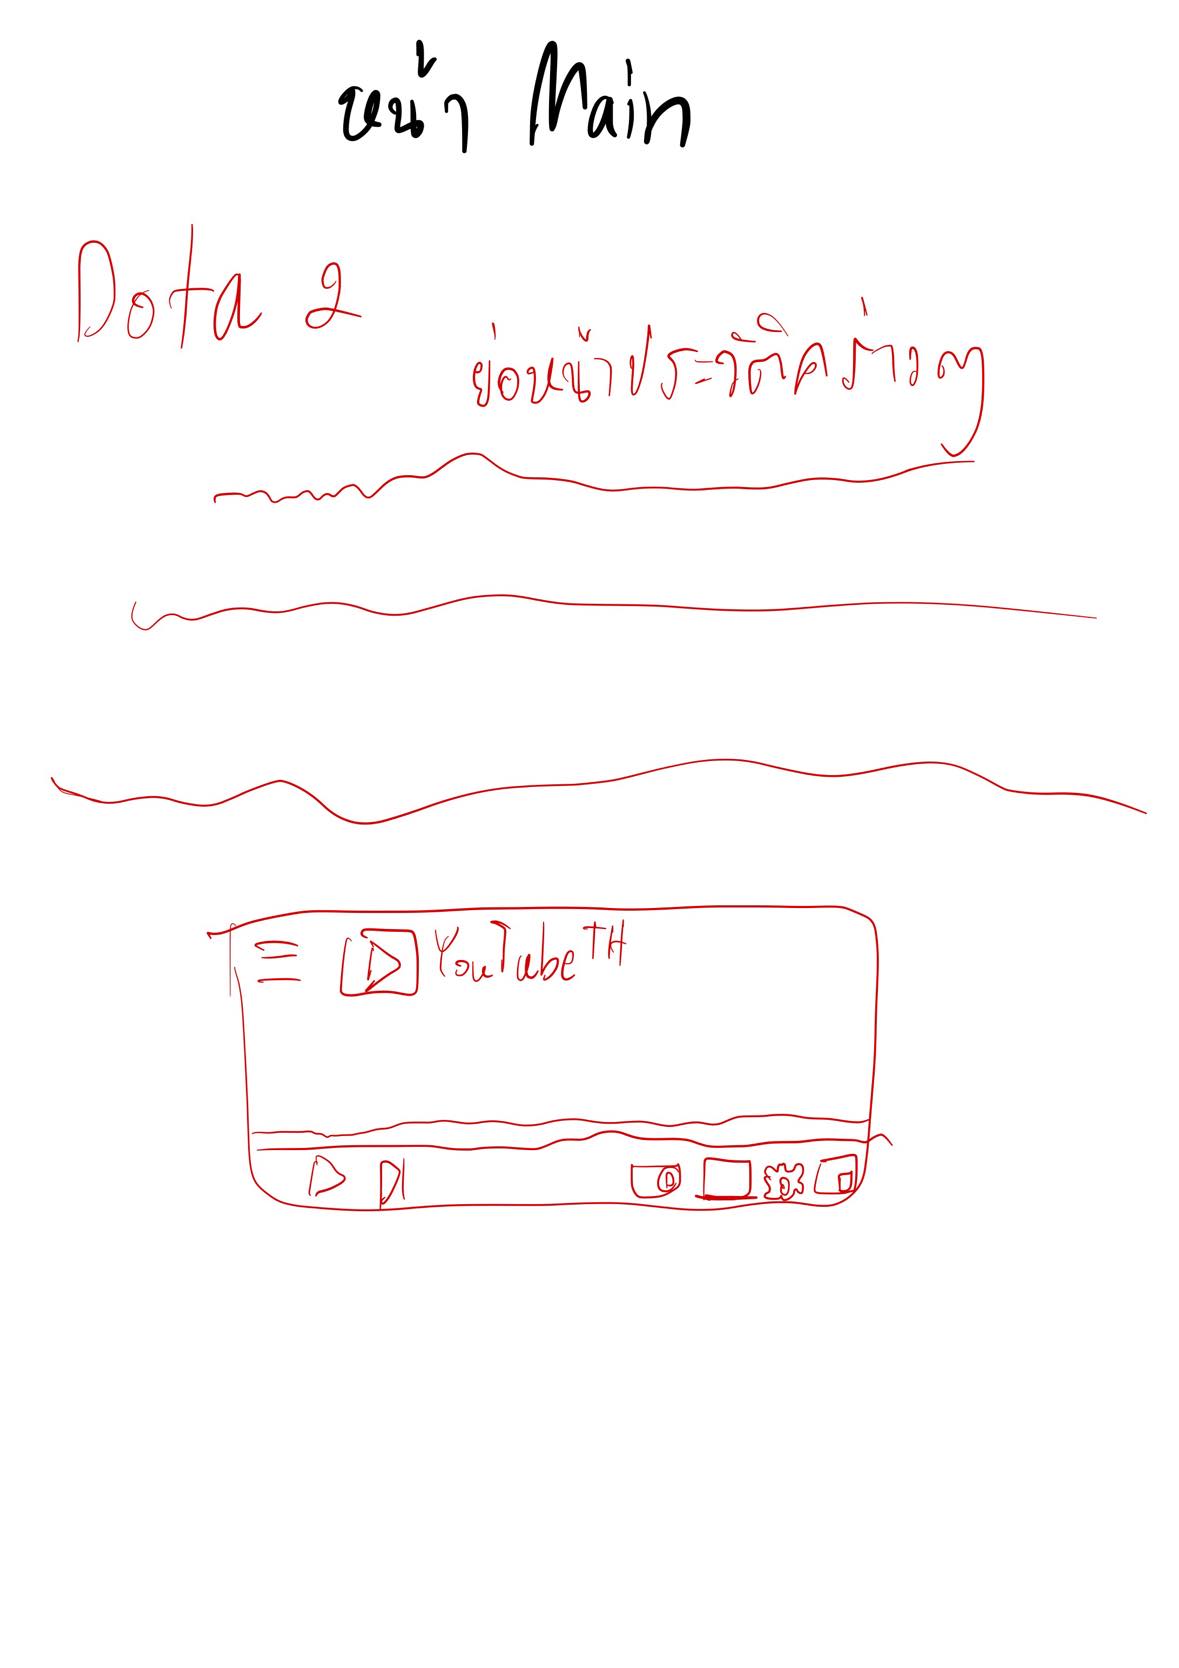 หน้า Main
Dota 2
ย่อหน้าประวัติคร่าวๆ
YouTube TH